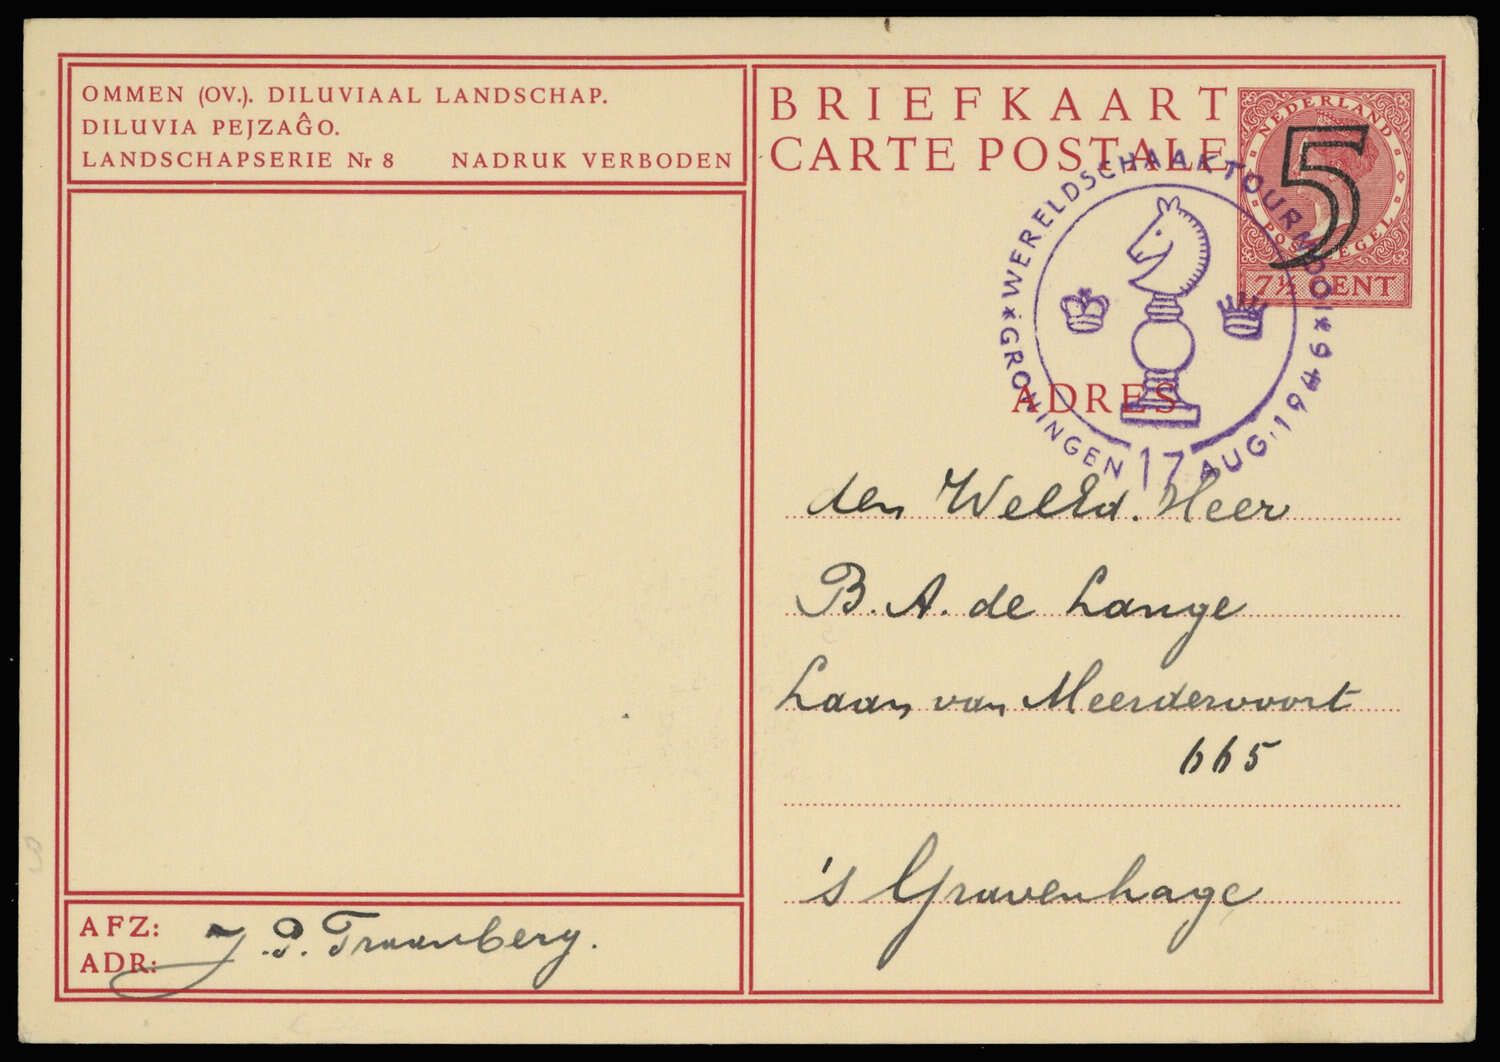 OMMEN (OV.). DILUVIAAL LANDSCHAP.
DILUVIA PEJZAĜO.
LANDSCHAPSERIE Nr 8 NADRUK VERBODEN
BRIEFKAART
CARTE POSTALE
NEDERLAND
POSTZEGEL
5
7½ CENT
*WERELDSCHAAKTOURNOOI*
GRONINGEN 17 AUG. 1946
ADRES
den WelEd. Heer
B. A. de Lange
Laan van Meerdervoort
665
's Gravenhage
AFZ: J. P. Traanberg.
ADR: